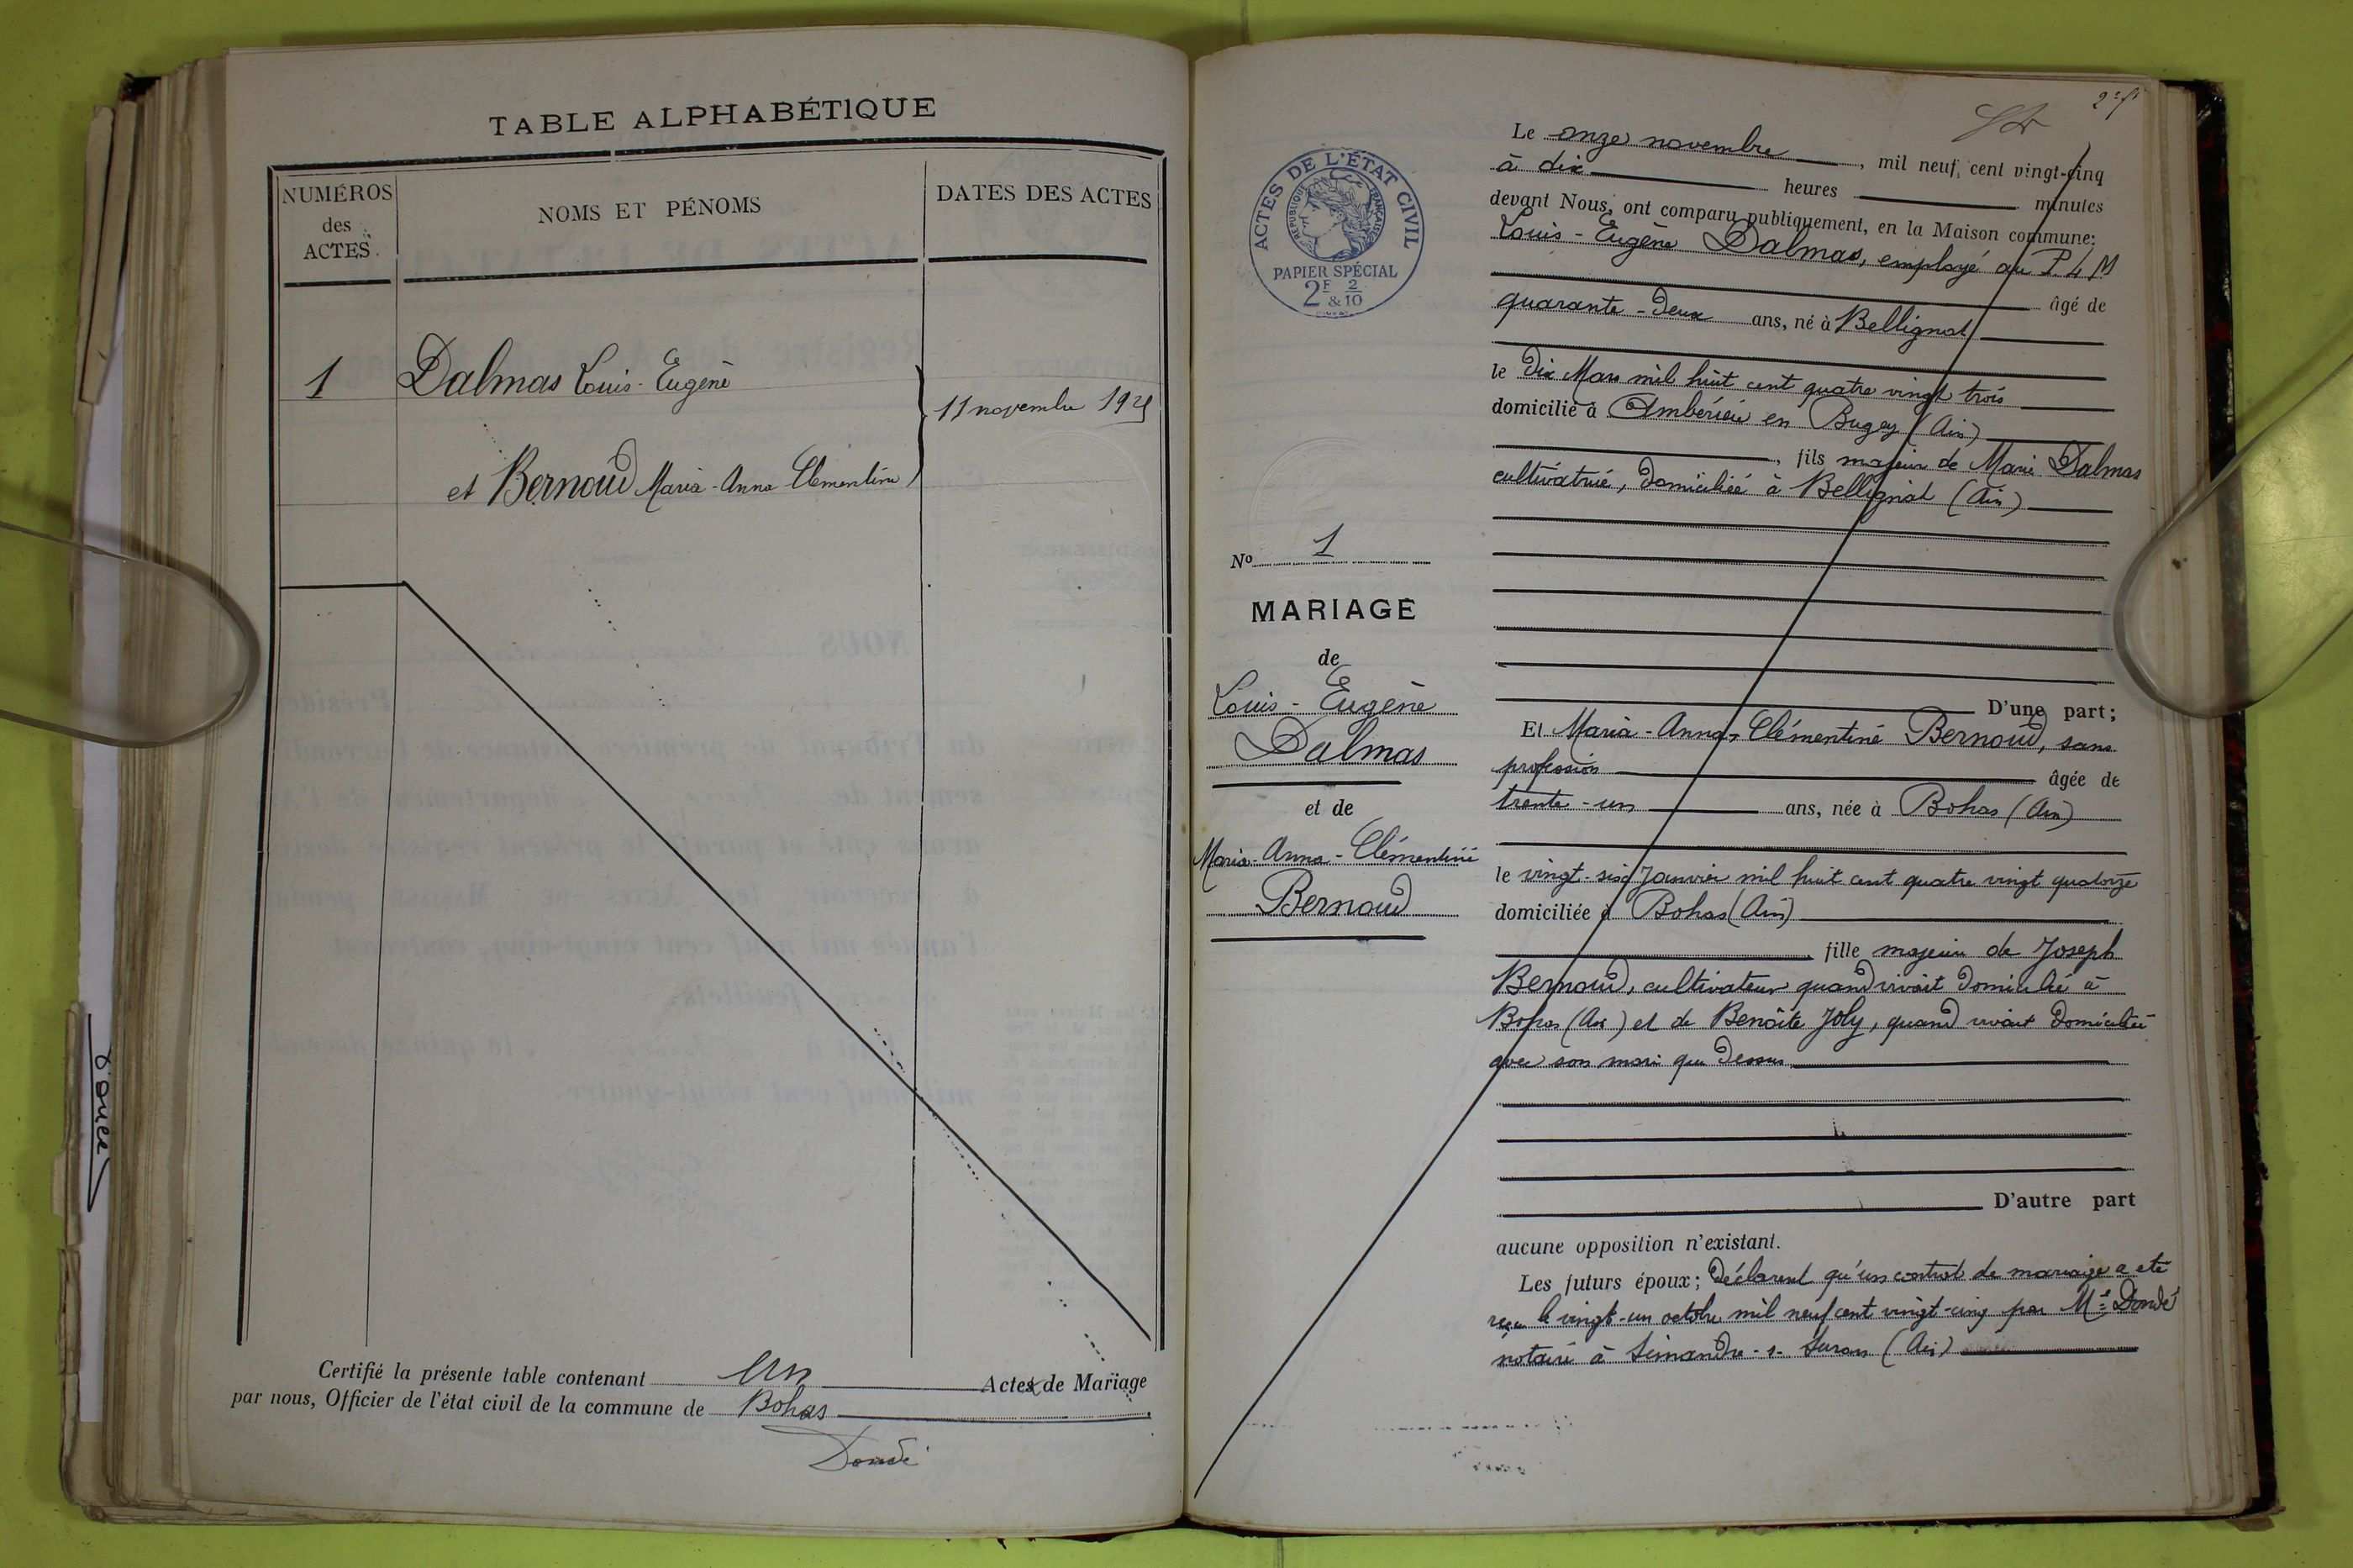 TABLE ALPHABÉTIQUE
NUMÉROS
des
ACTES.
NOMS ET PÉNOMS
DATES DES ACTES
1
Dalmas Louis-Eugène
11 novembre 1925
et Bernoud Maria-Anna Clémentine
Certifié la présente table contenant un Actes de Mariage
par nous, Officier de l'état civil de la commune de Bohas
Dondé
ACTES DE L'ÉTAT CIVIL
RÉPUBLIQUE FRANÇAISE
PAPIER SPÉCIAL
2F & 2/10
No 1
MARIAGE
de
Louis-Eugène
Dalmas
et de
Maria-Anna-Clémentine
Bernoud
Le onze novembre, mil neuf cent vingt-cinq
à dix heures minutes
devant Nous, ont comparu publiquement, en la Maison commune:
Louis-Eugène Dalmas, employé au P L M
âgé de
quarante-deux ans, né à Bellignat
le dix Mars mil huit cent quatre vingt trois
domicilié à Ambérieu en Bugey (Ain)
, fils majeur de Marie Dalmas
cultivatrice, domiciliée à Bellignat (Ain)
D'une part;
Et Maria-Anna-Clémentine Bernoud, sans
profession âgée de
trente-un ans, née à Bohas (Ain)
le vingt-six Janvier mil huit cent quatre vingt quatorze
domiciliée à Bohas (Ain)
fille majeure de Joseph
Bernoud, cultivateur quand vivait domicilié à
Bohas (Ain) et de Benoîte Joly, quand vivait domiciliée
avec son mari que dessus
D'autre part
aucune opposition n'existant.
Les futurs époux; déclarent qu'un contrat de mariage a été
reçu le vingt-un octobre mil neuf cent vingt-cinq par Me Dondé
notaire à Simandre-s-Suran (Ain)